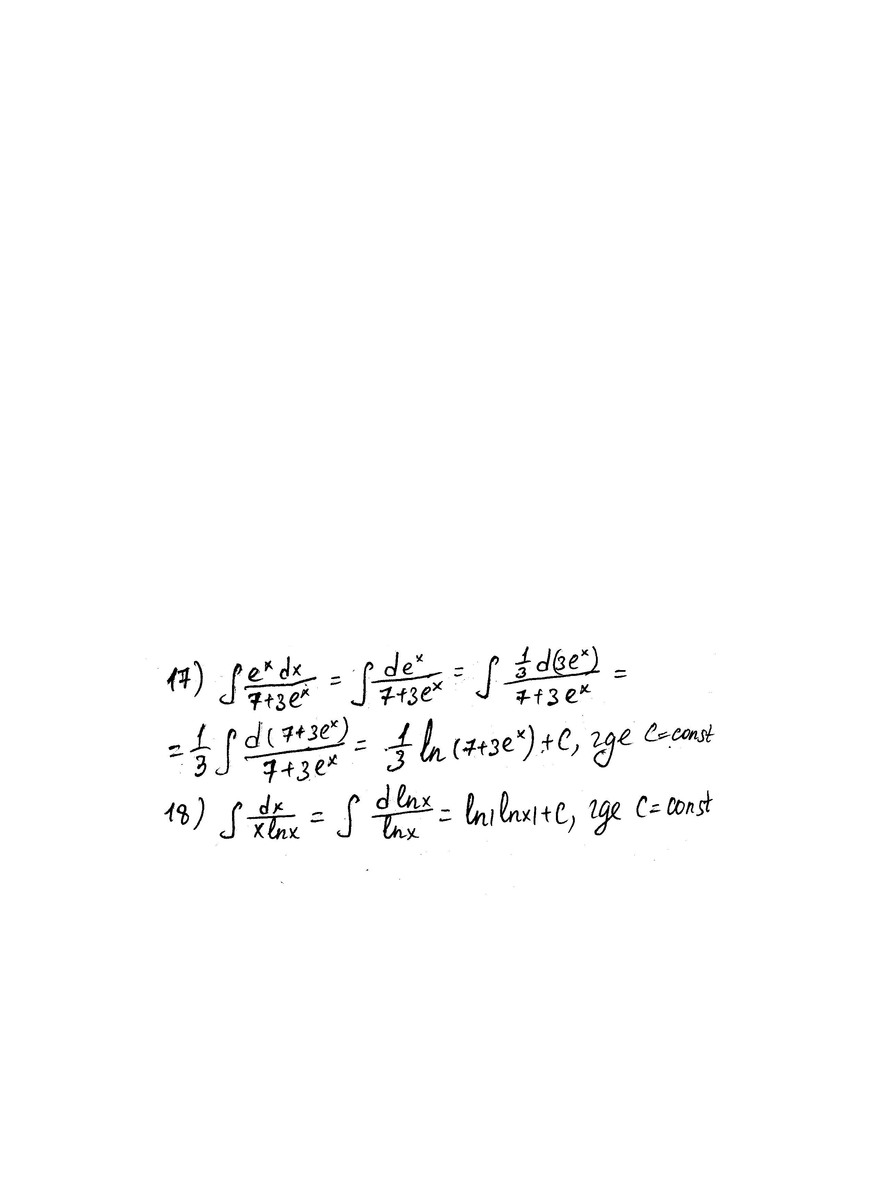 17) ∫ e^x dx / (7+3e^x) = ∫ de^x / (7+3e^x) = ∫ (1/3 d(3e^x)) / (7+3e^x) =
= 1/3 ∫ d(7+3e^x) / (7+3e^x) = 1/3 ln (7+3e^x) + C, где C=const
18) ∫ dx / (x lnx) = ∫ d lnx / lnx = ln|lnx|+C, где C=const